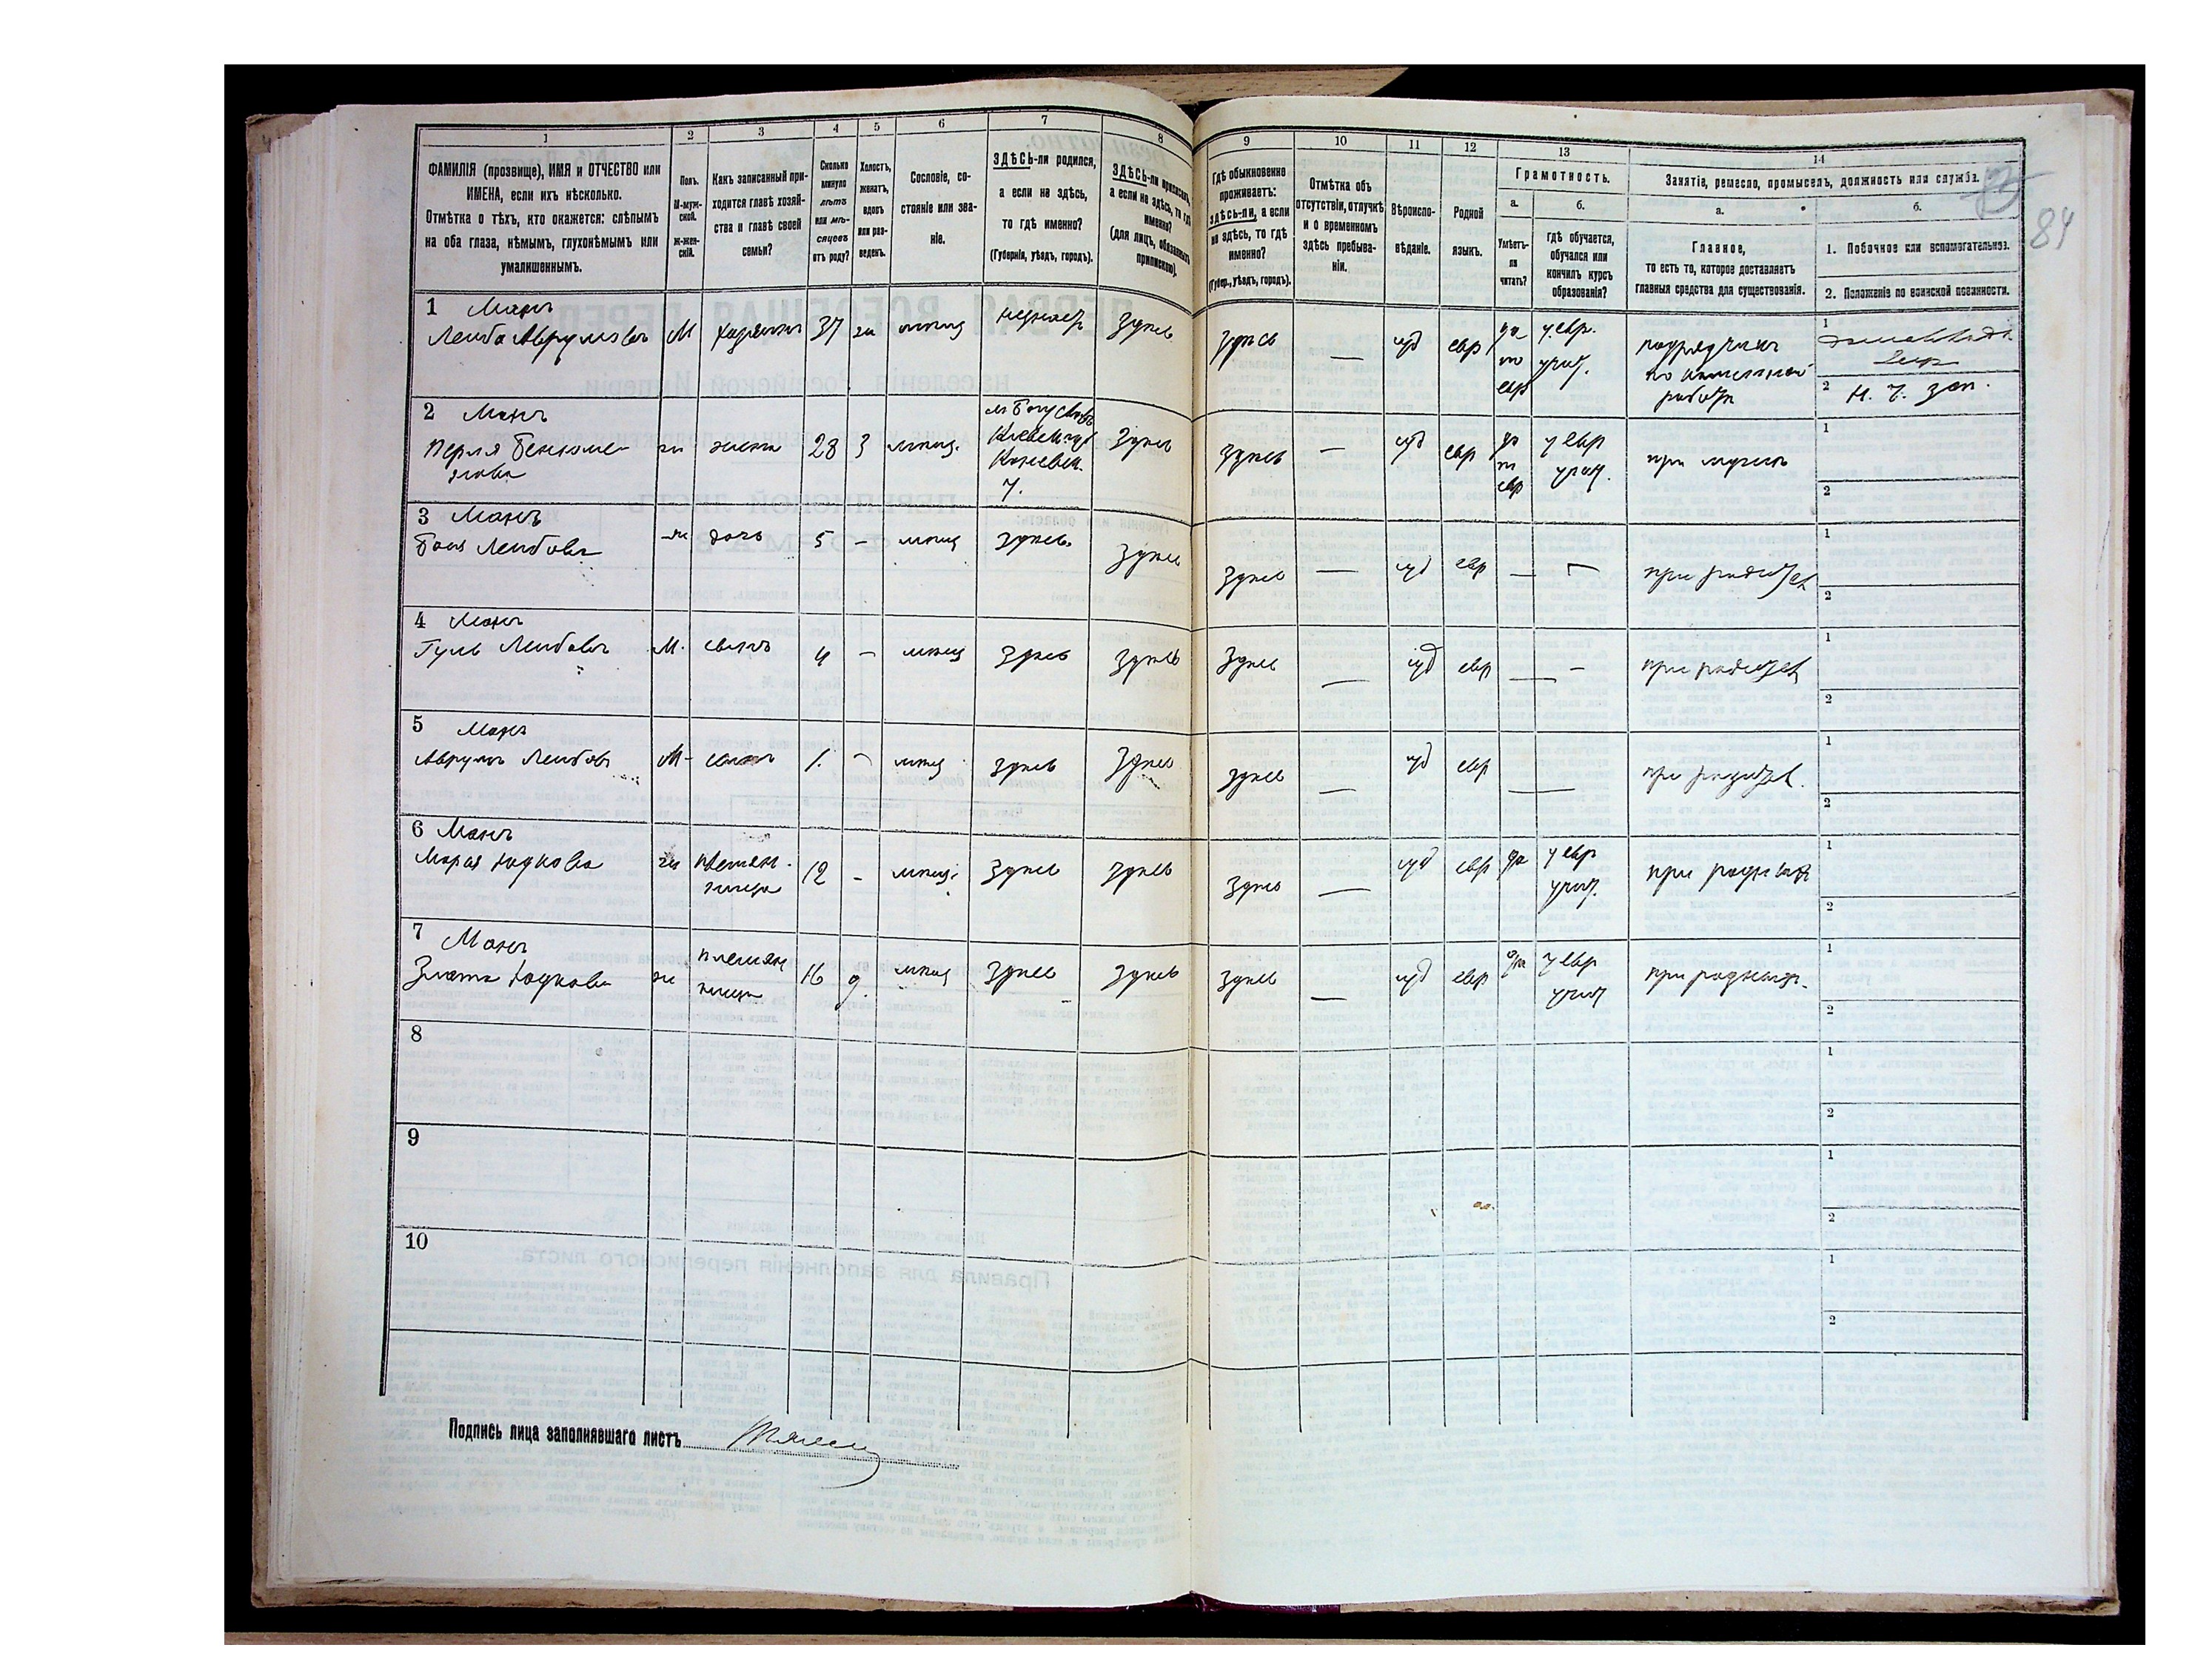 1 2 3 4 5 6 7 8
ФАМИЛІЯ (прозвище), ИМЯ и ОТЧЕСТВО или
ИМЕНА, если ихъ нѣсколько.
Отмѣтка о тѣхъ, кто окажется: слѣпымъ
на оба глаза, нѣмымъ, глухонѣмымъ или
умалишеннымъ.
Полъ.
М-муж-
ской.
ж-жен-
скій.
Какъ записанный при-
ходится главѣ хозяй-
ства и главѣ своей
семьи?
Сколько
минуло
лѣтъ
или мѣ-
сяцевъ
отъ роду?
Холостъ,
женатъ,
вдовъ
или раз-
веденъ.
Сословіе, со-
стояніе или зва-
ніе.
ЗДѢСЬ-ли родился,
а если не здѣсь,
то гдѣ именно?
(Губернія, уѣздъ, городъ).
ЗДѢСЬ-ли приписанъ,
а если не здѣсь, то гдѣ
именно?
(для лицъ, обязанныхъ
припискою).
9 10 11 12 13 14
Гдѣ обыкновенно
проживаетъ:
здѣсь-ли, а если
не здѣсь, то гдѣ
именно?
(Губер., уѣздъ, городъ).
Отмѣтка объ
отсутствіи, отлучкѣ
и о временномъ
здѣсь пребыва-
ніи.
Вѣроиспо-
вѣданіе.
Родной
языкъ.
Грамотность.
а. б.
Умѣетъ-
ли
читать?
гдѣ обучается,
обучался или
кончилъ курсъ
образованія?
Занятіе, ремесло, промыселъ, должность или служба.
а. б.
Главное,
то есть то, которое доставляетъ
главныя средства для существованія.
1. Побочное или вспомогательное.
2. Положеніе по воинской повинности.
84
1 Манъ
Лейба Аврумовъ М хозяинъ 37 здѣсь
здѣсь — іуд евр да у евр.
подрядчикъ
работѣ
1
2
2 Манъ
Перля ж жена 28 З мѣщ. здѣсь
Кіевск. губ
Каневск.
у.
здѣсь — іуд евр да у евр при мужѣ
1
2
3 Манъ
Лейбова ж дочь 5 – мѣщ здѣсь здѣсь
здѣсь — іуд евр — — при родител
1
2
4 Манъ
Лейбовъ М. сынъ 4 – мѣщ здѣсь здѣсь
здѣсь — іуд евр — – при родител
1
2
5 Манъ
Аврумъ Лейбовъ М сынъ 1. – мѣщ здѣсь здѣсь
здѣсь — іуд евр — при родител.
1
2
6 Манъ
Юдкова ж племян-
ница 12 – мѣщ. здѣсь здѣсь
здѣсь — іуд евр да у евр
1
2
7 Манъ
Злата Юдкова ж племян
ница 16 д. мѣщ здѣсь здѣсь
здѣсь — іуд евр да у евр
1
2
8
1
2
9
1
2
10
1
2
Подпись лица заполнявшаго листъ